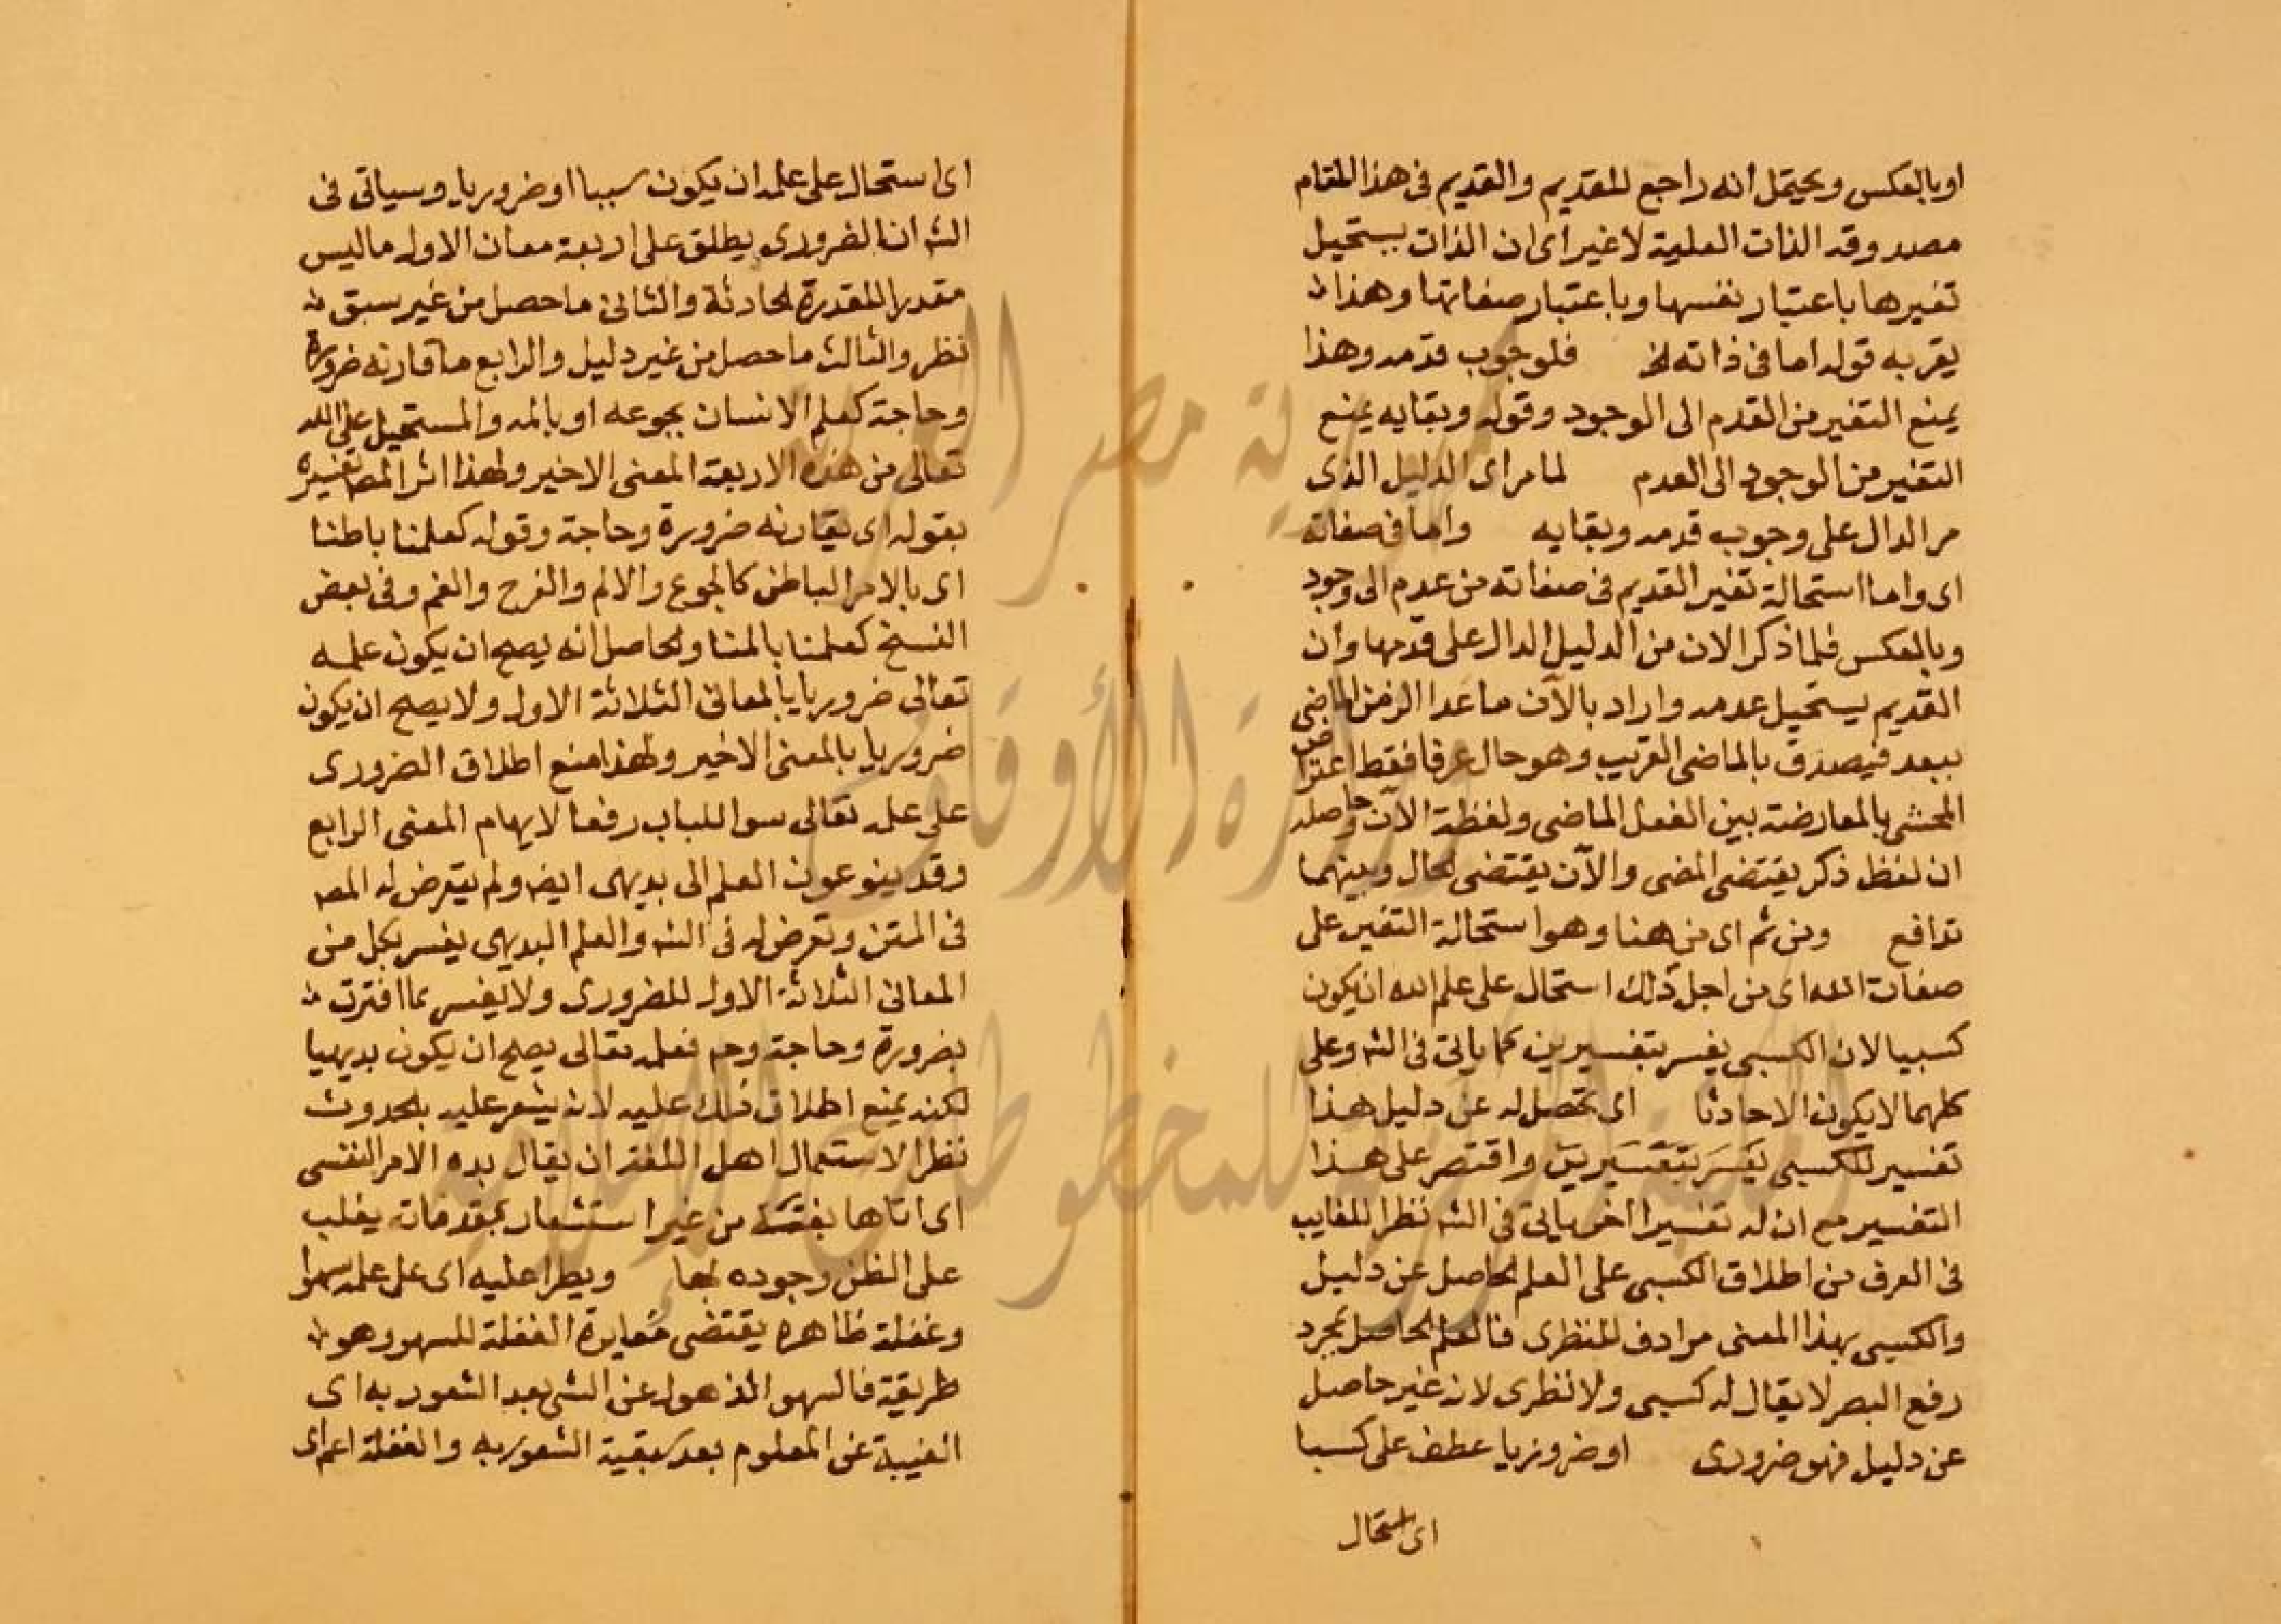 او بالعكس ويحتمل انه راجع للقديم والقديم في هذا المقام
مصدوقه الذات العلية لا غير اى ان الذات يستحيل
تغيرها باعتبار نفسها وباعتبار صفاتها وهذا
يقربه قوله اما فى ذاته الخ فلوجوب قدمه وهذا
يمنع التغير من القدم الى الوجود وقوله وبقايه يمنع
التغير من الوجود الى العدم لما مر اى الدليل الذى
مر الدال على وجوب قدمه وبقايه واما فى صفاته
اى واما استحالة تغير القديم فى صفاته من عدم الى وجود
وبالعكس فلما ذكر الان من الدليل الدال على قدمها وان
القديم يستحيل عدمه واراد بالآن ما عدا الزمن الماضى
ببعد فيصدق بالماضى القريب وهو حال عرفا فقط اعتراض
المحشى بالمعارضة بين الفعل الماضى ولفظة الآن وحاصله
ان لفظ ذكر يقتضى المضى والآن يقتضى الحال وبينهما
تدافع ومن ثم اى من هنا وهو استحالة التغير على
صفات الله اى من اجل ذلك استحال على علم الله ان يكون
كسبيا لان الكسبى يفسر بتفسيرين كما ياتى فى الشه وعلى
كلهما لا يكون الا حادثا اى تحصل له عن دليل هذا
تفسير للكسبى يفسر بتفسيرين واقتصر على هذا
التفسير مع ان له تفسيرا اخر ياتى فى الشه نظرا للغايب
فى العرف من اطلاق الكسبى على العلم الحاصل عن دليل
والكسبى بهذا المعنى مرادف للنظرى فالعلم الحاصل بمجرد
رفع البصر لا يقال له كسبى ولا نظرى لانه غير حاصل
عن دليل فهو ضرورى او ضروريا عطف على كسبا
اى استحال
اى استحال على علمه ان يكون سببا او ضروريا وسياتى فى
الشه ان الضرورى يطلق على اربعة معان الاول ما ليس
مقدورا للقدرة الحادثة والثانى ما حصل من غير سبق
نظر والثالث ما حصل من غير دليل والرابع ما قارنه ضرورة
وحاجة كعلم الانسان بجوعه او بالمه والمستحيل على الله
تعالى من هذه الاربعة المعنى الاخير ولهذا اثر المص تفسيره
بقوله اى يقارنه ضرورة وحاجة وقوله كعلمنا باطنا
اى بالامر الباطن كالجوع والالم والفرح والغم وفى بعض
النسخ كعلمنا بالمنا والحاصل انه يصح ان يكون علمه
تعالى ضروريا بالمعانى الثلاثة الاول ولا يصح ان يكون
ضروريا بالمعنى الاخير ولهذا منع اطلاق الضرورى
على علمه تعالى سوا للباب رفعا لايهام المعنى الرابع
وقد ينوعون العلم الى بديهى ايضه ولم يتعرض له المصه
فى المتن وتعرض له فى الشه والعلم البديهى يفسر بكل من
المعانى الثلاثة الاول للضرورى ولا يفسر بما اقترن
بضرورة وحاجة وحم فعلمه تعالى يصح ان يكون بديهيا
لكنه يمنع اطلاق ذلك عليه لانه يشعر عليه بالحدوث
نظرا لاستعمال اهل اللغة ان يقال بده الامر النفسى
اى اتاها بغتة من غير استشعار بمقدمات يغلب
على الظن وجوده لها ويطرا عليه اى على علمه سهوا
وغفلة ظاهره يقتضى مغايرة الغفلة للسهو وهو
طريقة فالسهو الذهول عن الشى بعد الشعور به اى
الغيبة عن المعلوم بعد سبقية الشعور به والغفلة اعم اى